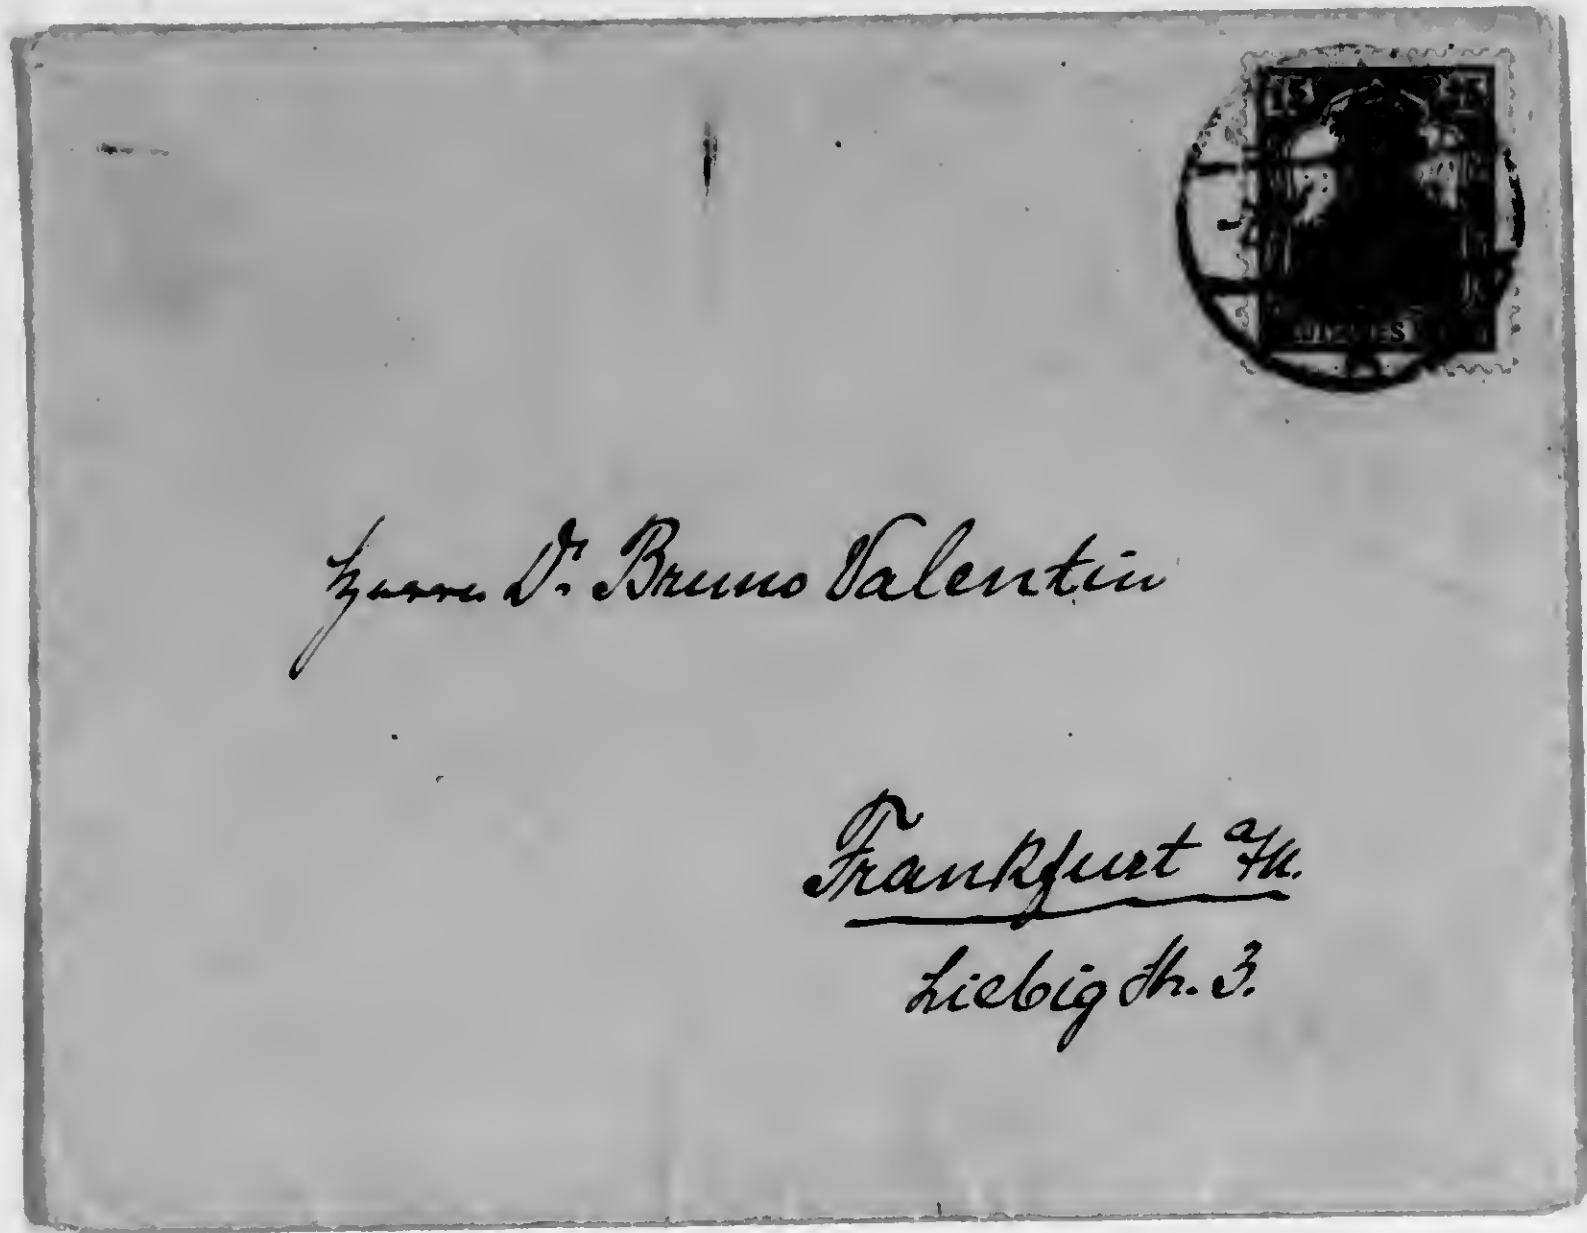 15 15
Herrn Dr. Bruno Valentin
Frankfurt a/M.
Liebigstr. 3.